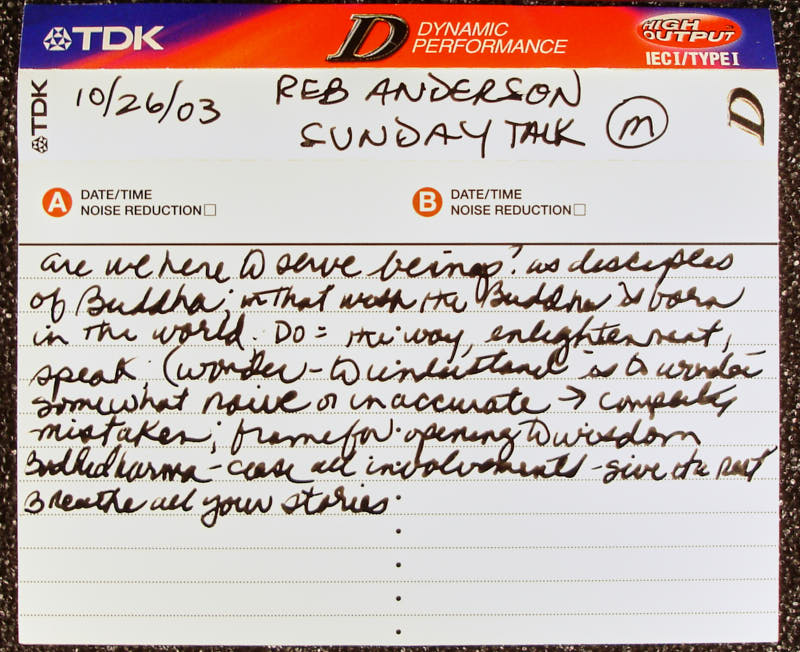 TDK
D DYNAMIC
PERFORMANCE
HIGH
OUTPUT
IEC I/TYPE I
TDK
10/26/03 REB ANDERSON
SUNDAY TALK M
D
A DATE/TIME
NOISE REDUCTION
B DATE/TIME
NOISE REDUCTION
are we here to serve beings? as disciples
of Buddha; in that wish the Buddha is born
in the world. DO = the way, enlightenment,
speak; (wonder - to understand is to wonder
somewhat naive or inaccurate → completely
mistaken; frame for opening to wisdom
Bodhidharma - cease all involvements - give it a rest
Breathe all your stories